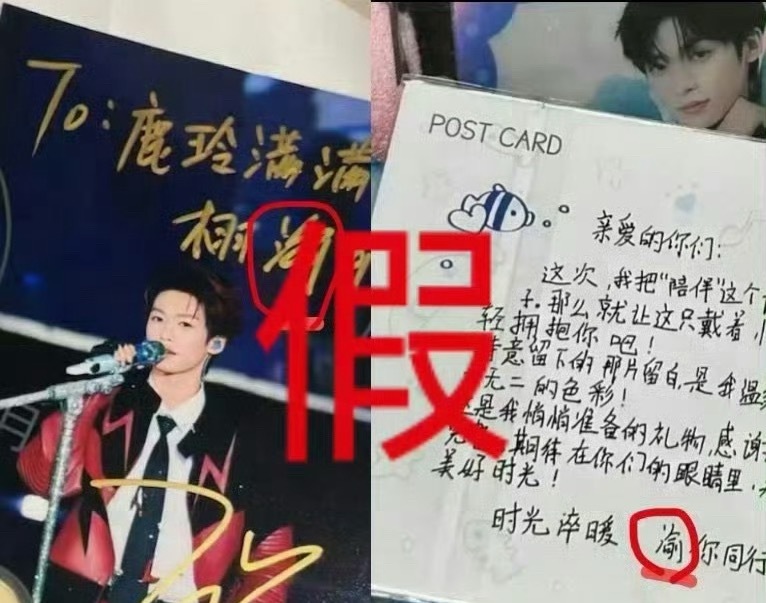 To:鹿玲满满
栩渝
假
POST CARD
亲爱的你们:
这次,我把"陪伴"这个
子.那么就让这只戴着,
轻拥抱你吧!
特意留下的那片留白,是我温
无二的色彩!
是我悄悄准备的礼物,感谢
期待在你们的眼睛里,
美好时光!
时光淬暖 渝你同行